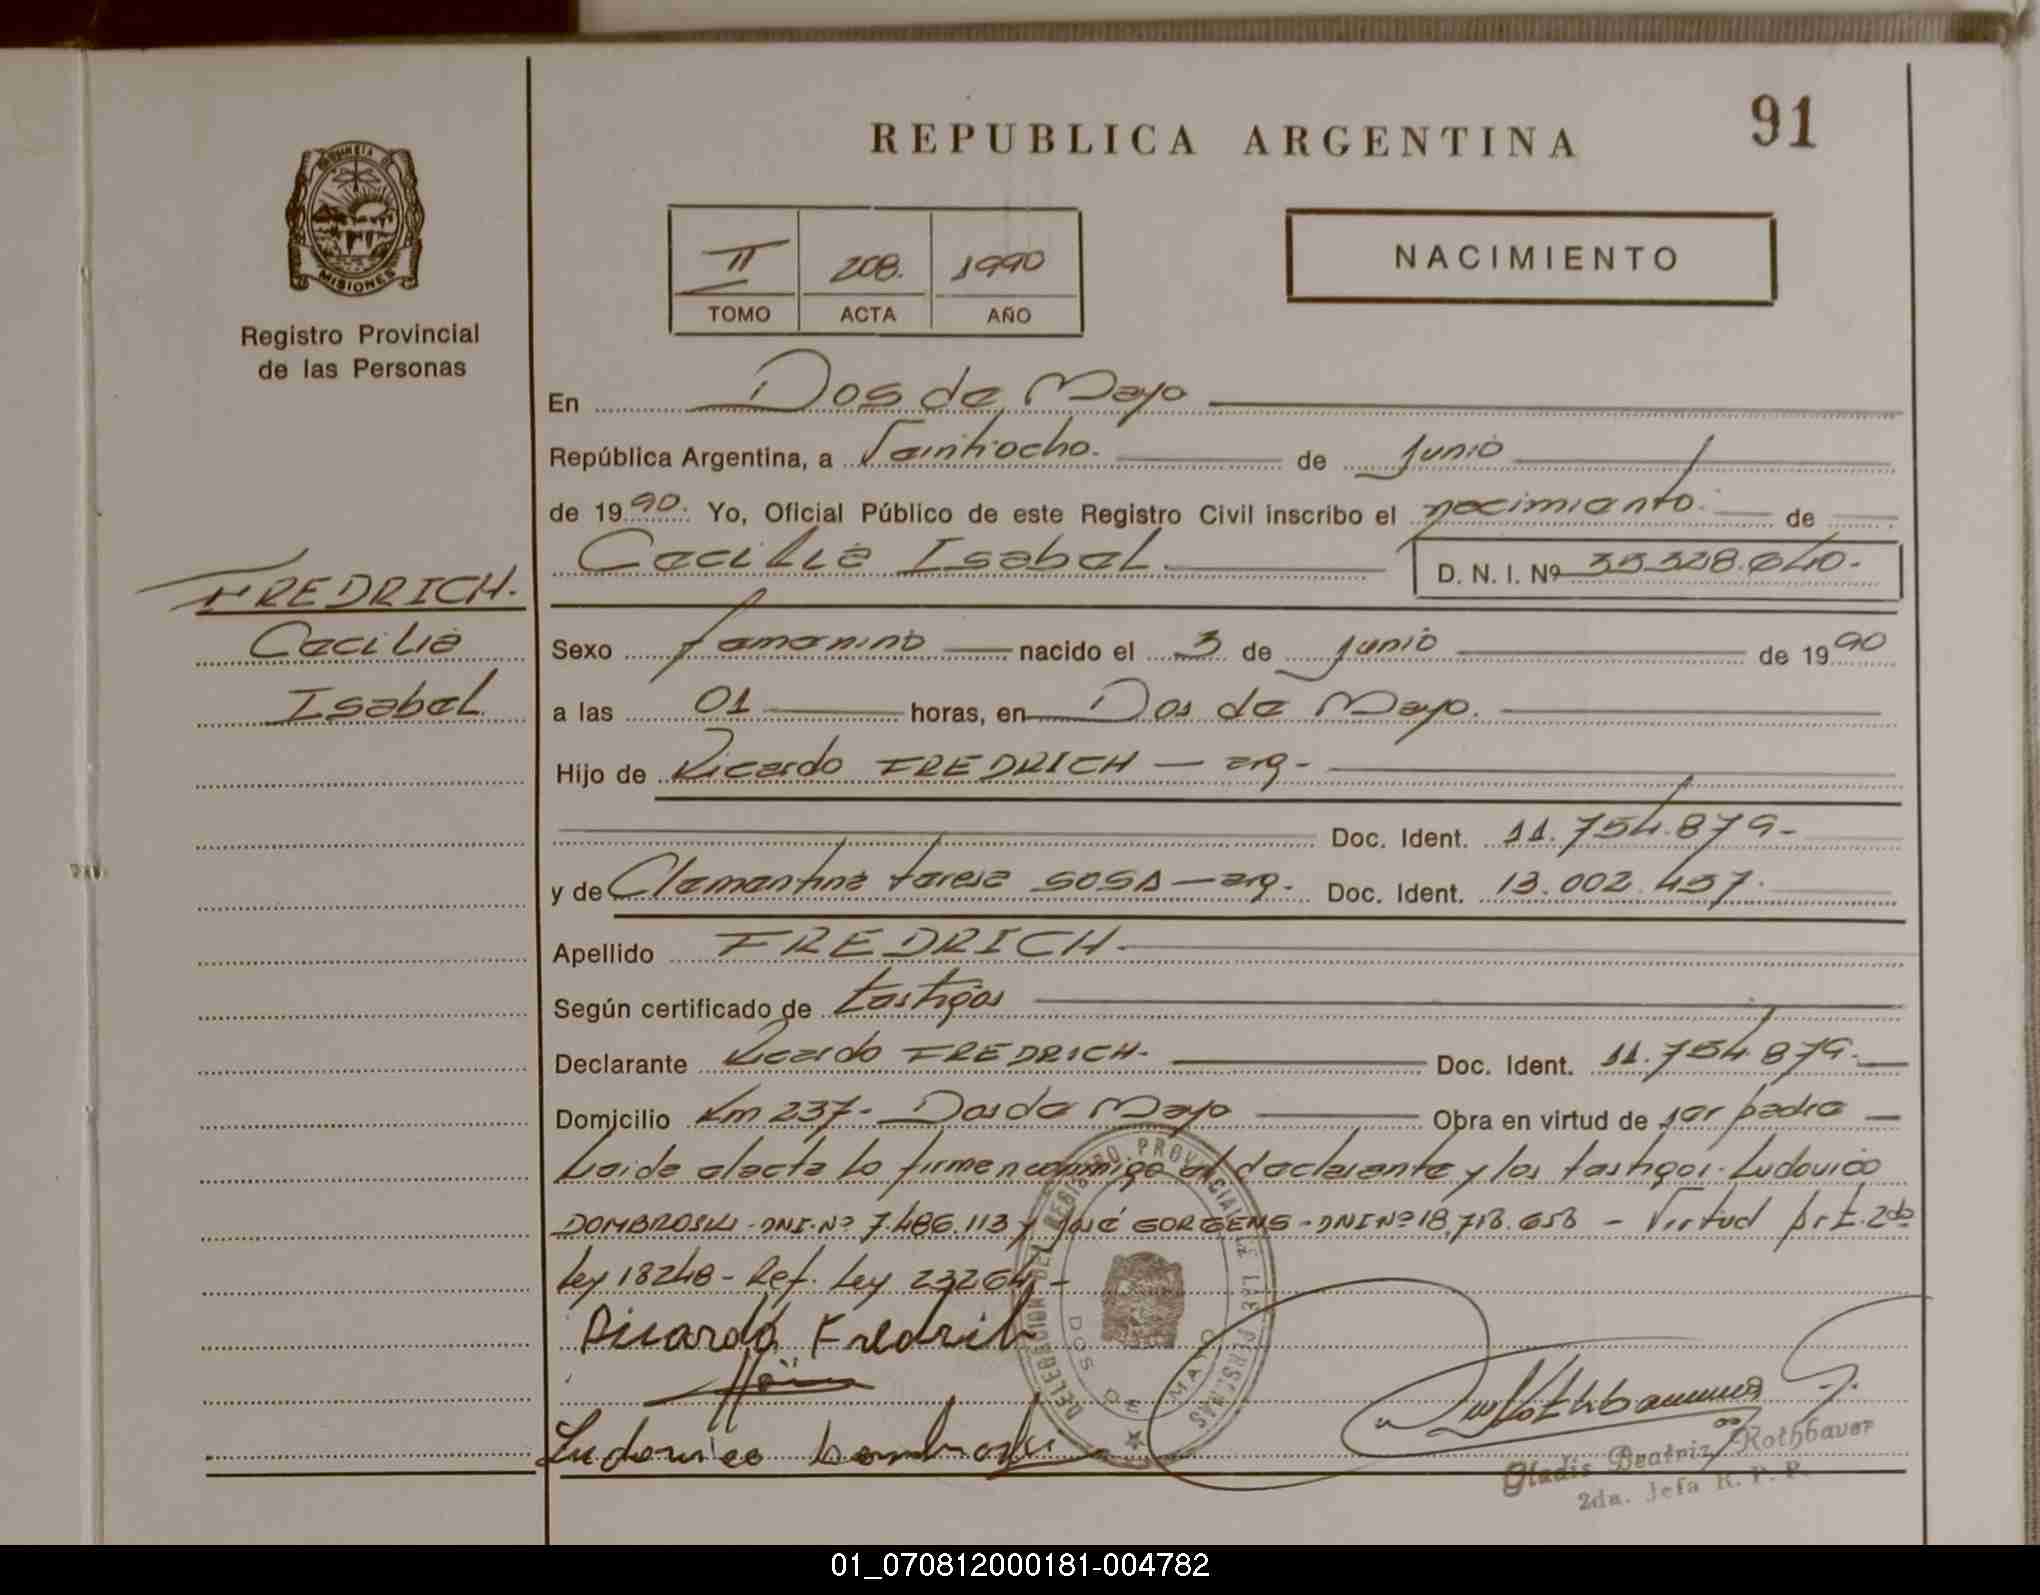 REPUBLICA ARGENTINA
91
PROVINCIA DE
MISIONES
Registro Provincial
de las Personas
II 208. 1990
TOMO ACTA AÑO
NACIMIENTO
En Dos de Mayo
República Argentina, a Veintiocho. de junio
de 1990. Yo, Oficial Público de este Registro Civil inscribo el nacimiento. de
Cecilia Isabel D. N. I. Nº 35.328.640.-
FREDRICH.
Cecilia
Isabel
Sexo femenino nacido el 3 de junio de 1990
a las 01 horas, en Dos de Mayo.
Hijo de Ricardo FREDRICH — arg-
Doc. Ident. 11.754.879-
y de Clementina teresa SOSA — arg. Doc. Ident. 13.002.437.
Apellido FREDRICH.
Según certificado de testigos
Declarante Ricardo FREDRICH. Doc. Ident. 11.754.879.
Domicilio Km 237- Dos de Mayo Obra en virtud de ser padre
Leida el acta lo firmen conmigo el declarante y los testigos. Ludovico
DOMBROSKI - DNI-Nº 7.486.113 y José GORGENS - DNI Nº 18.713.653 - Virtud Art. 2do
Ley 18248 - Ref. Ley 23264 -
Ricardo Fredrich
Ludovico Dombroski
DELEGACION DEL REGISTRO PROVINCIAL DE LAS PERSONAS
DOS DE MAYO
Gladis Beatriz Rothbauer
2da. Jefa R. P. P.
01_070812000181-004782